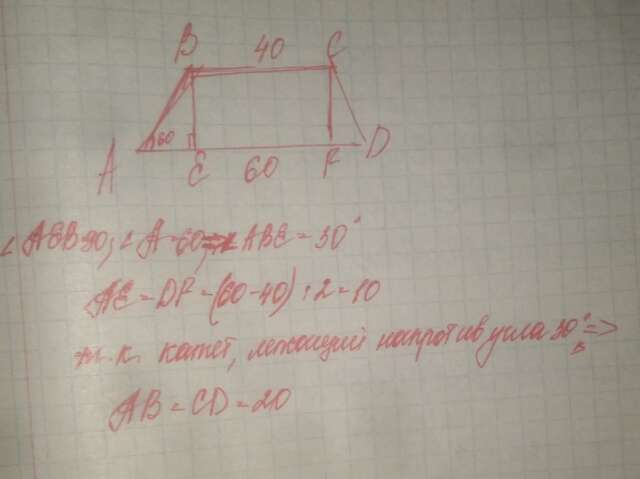 B 40 C
60
A E 60 F D
∠AEB=90; ∠A=60; => ∠ABE=30°
AE=DF=(60-40):2=10
т.к. катет, лежащий напротив угла 30° =>
AB=CD=20